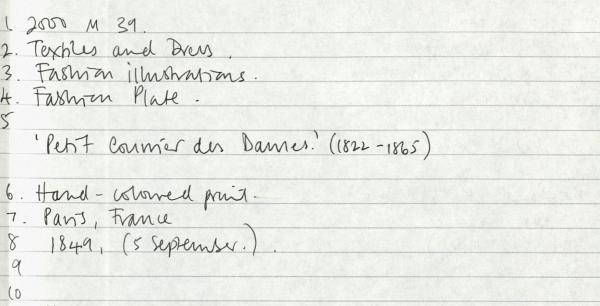 1 2000 M 39.
2. Textiles and Dress.
3. Fashion illustrations.
4. Fashion Plate.
5
'Petit Courrier des Dames.' (1822-1865)
6. Hand-coloured print.
7. Paris, France
8 1849, (5 September.).
9
10